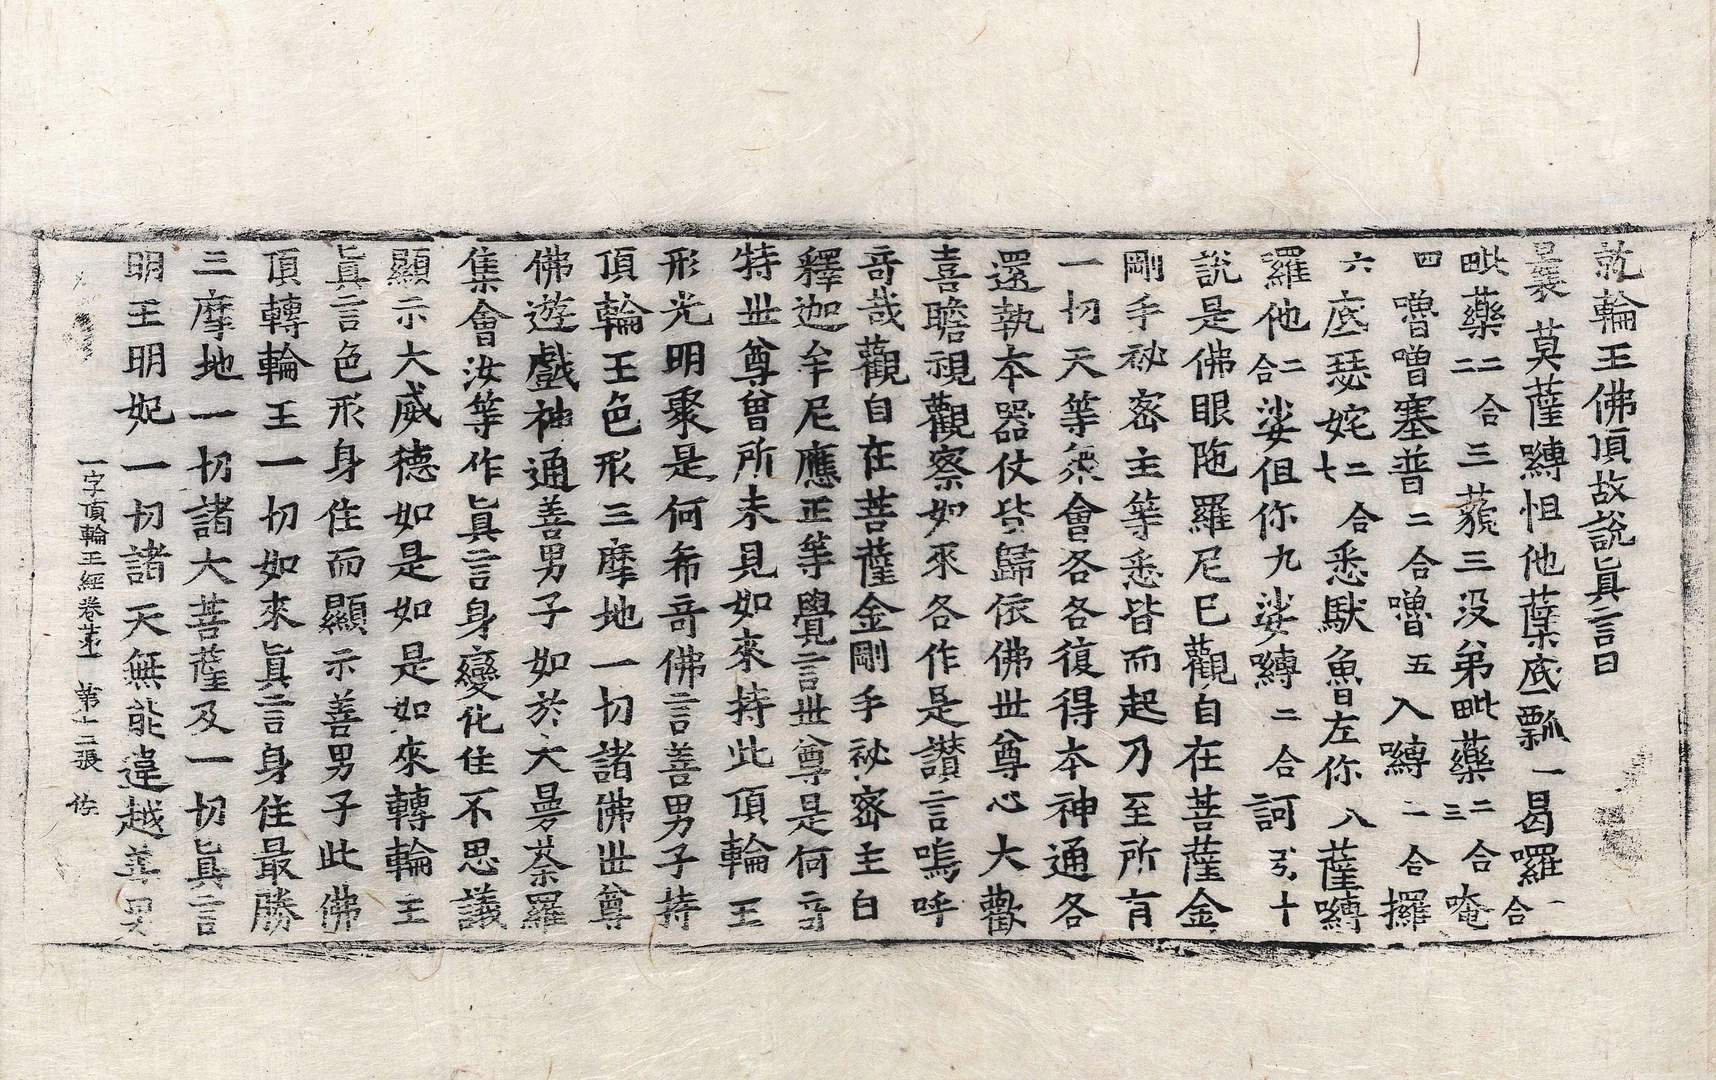 就輪王佛頂故說眞言曰
曩莫薩嚩怛他蘖底瓢一曷囉二合
毗藥二合三藐三没弟毗藥二合三唵
四嚕嚕塞普二合嚕五入嚩二合攞
六底瑟姹二合七悉馱魯左你八薩嚩
羅他二合娑但你九娑嚩二合訶引十
說是佛眼陁羅尼已觀自在菩薩金
剛手祕密主等悉皆而起乃至所有
一切天等衆會各各復得本神通各
還執本器仗皆歸依佛世尊心大歡
喜瞻視觀察如來各作是讃言嗚呼
奇哉觀自在菩薩金剛手祕密主白
釋迦牟尼應正等覺言世尊是何奇
特世尊曾所未見如來持此頂輪王
形光明聚是何希奇佛言善男子持
頂輪王色形三摩地一切諸佛世尊
佛遊戲神通善男子如於大曼荼羅
集會汝等作眞言身變化住不思議
顯示大威德如是如是如來轉輪王
眞言色形身住而顯示善男子此佛
頂轉輪王一切如來眞言身住最勝
三摩地一切諸大菩薩及一切眞言
明王明妃一切諸天無能違越善男
一字頂輪王經卷苐一 苐十二張 佐